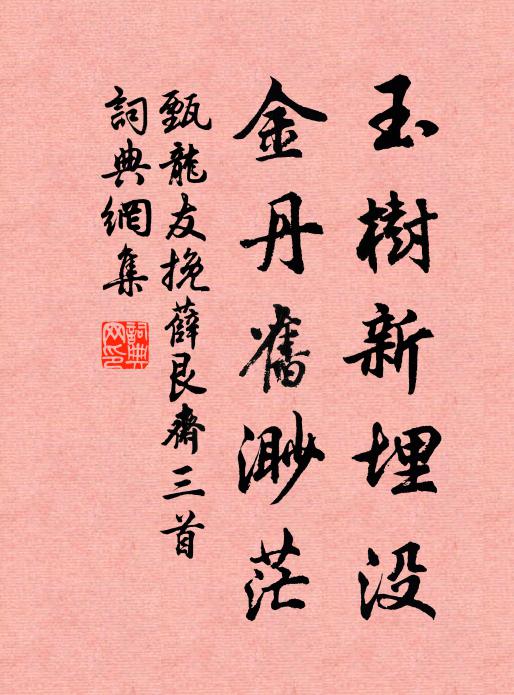 玉樹新埋没
金丹舊渺茫
甄龍友挽薛艮齋三首
詞典網集
詞典網印